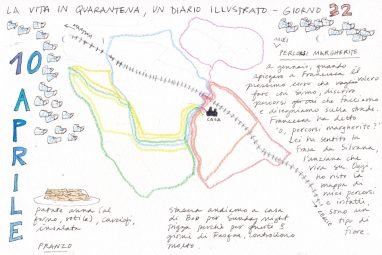 LA VITA IN QUARANTENA, UN DIARIO ILLUSTRATO - GIORNO 32
10 APRILE
MIEI
PERCORSI MARGHERITE
a gennaio, quando
spiegavo a Francesca il
prossimo corso che
fare con Simo, discorso
percorsi che facciamo
e disegniamo sulle strade.
Francesca ha detto
"o, percorsi margherite?"
Lei ha sentito la
frase da Silvana,
l'anziana che
vive su. Oggi,
ho visto la
mappa di
miei percorsi
e infatti,
sono un
tipo di
fiore.
CASA
patate anna (al
forno, a fette), carciofi,
insalata
PRANZO
Stasera andiamo a casa
di Bob per Sunday night
perché per questi 3
giorni di Pasqua, controllano
molto.